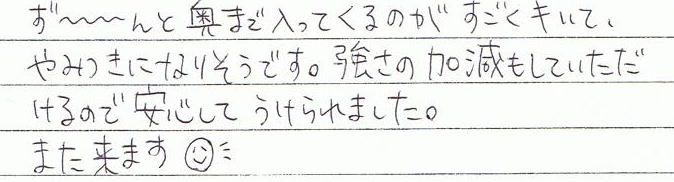 ず〜〜〜んと奥まで入ってくるのがすごくキいて、
やみつきになりそうです。強さの加減もしていただ
けるので安心してうけられました。
また来ます☺